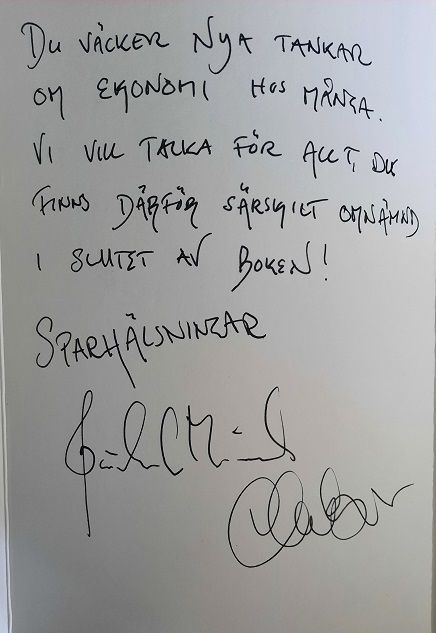 Du väcker nya tankar
om ekonomi hos många.
Vi vill tacka för allt, du
finns därför särskilt omnämnd
i slutet av boken!
Sparhälsningar